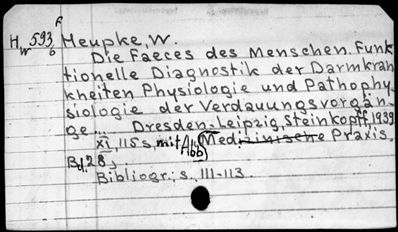 H 593 Heupke, W.
w 6
Die Faeces des Menschen. Funk
tionelle Diagnostik der Darmkran
kheiten Physiologie und Pathophy-
siologie der Verdauungsvorgän-
ge... Dresden-Leipzig, Steinkopff, 1939
XI, 115 s, mit Abb (Medizinische Praxis,
Bd. 28)
Bibliogr.: s. 111-113.